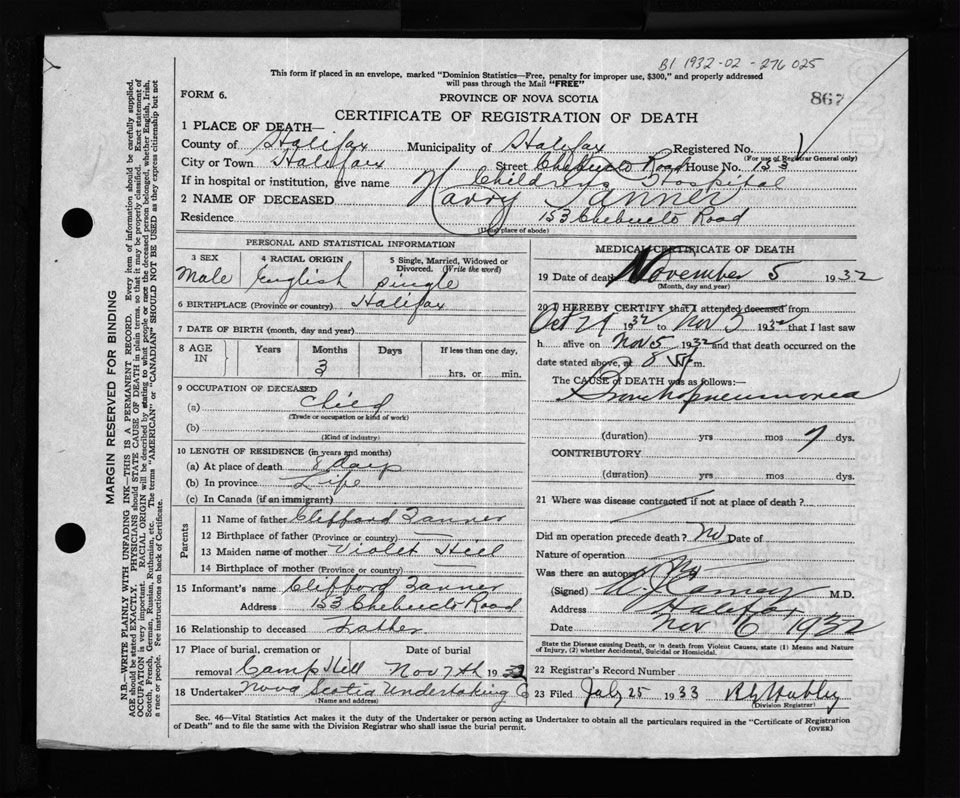 B1 1932-02-276025
This form if placed in an envelope, marked "Dominion Statistics—Free, penalty for improper use, $300," and properly addressed
will pass through the Mail "FREE"
867
FORM 6.
PROVINCE OF NOVA SCOTIA
CERTIFICATE OF REGISTRATION OF DEATH
1 PLACE OF DEATH—
County of Halifax Municipality of Halifax Registered No.
(For use of Registrar General only)
City or Town Halifax Street Chebucto Road House No. 153
If in hospital or institution, give name Childrens Hospital
2 NAME OF DECEASED Harry Tanner
Residence 153 Chebucto Road
(Usual place of abode)
PERSONAL AND STATISTICAL INFORMATION
3 SEX 4 RACIAL ORIGIN 5 Single, Married, Widowed or Divorced. (Write the word)
Male English single
6 BIRTHPLACE (Province or country) Halifax
7 DATE OF BIRTH (month, day and year)
8 AGE IN Years Months Days If less than one day.
3 hrs. or min.
9 OCCUPATION OF DECEASED
(a) Child
(Trade or occupation or kind of work)
(b)
(Kind of industry)
10 LENGTH OF RESIDENCE (in years and months)
(a) At place of death 8 days
(b) In province Life
(c) In Canada (if an immigrant)
Parents
11 Name of father Clifford Tanner
12 Birthplace of father (Province or country) —
13 Maiden name of mother Violet Hill
14 Birthplace of mother (Province or country) —
15 Informant's name Clifford Tanner
Address 153 Chebucto Road
16 Relationship to deceased Father
17 Place of burial, cremation or Date of burial
removal Camp Hill Nov 7th 1932
18 Undertaker Nova Scotia Undertaking Co
(Name and address)
MEDICAL CERTIFICATE OF DEATH
19 Date of death November 5 1932
(Month, day and year)
20 I HEREBY CERTIFY that I attended deceased from
Oct 29 1932 to Nov 5 1932 that I last saw
h alive on Nov 5 1932 and that death occurred on the
date stated above, at 8 m.
The CAUSE of DEATH was as follows:—
Bronchopneumonia
(duration) yrs mos 7 dys.
CONTRIBUTORY
(duration) yrs mos dys.
21 Where was disease contracted if not at place of death?
Did an operation precede death? No Date of
Nature of operation
Was there an autopsy? No
(Signed) M.D.
Address Halifax
Date Nov 6 1932
State the Disease causing Death, or in death from Violent Causes, state (1) Means and Nature
of Injury, (2) whether Accidental, Suicidal or Homicidal.
22 Registrar's Record Number
23 Filed July 25 1933
(Division Registrar)
Sec. 46—Vital Statistics Act makes it the duty of the Undertaker or person acting as Undertaker to obtain all the particulars required in the "Certificate of Registration
of Death" and to file the same with the Division Registrar who shall issue the burial permit.
(OVER)
MARGIN RESERVED FOR BINDING
N.B.—WRITE PLAINLY WITH UNFADING INK—THIS IS A PERMANENT RECORD. Every item of information should be carefully supplied.
AGE should be stated EXACTLY. PHYSICIANS should STATE CAUSE OF DEATH in plain terms, so that it may be properly classified. Exact statement of
OCCUPATION is very important. RACIAL ORIGIN will be described by stating to what people or race the deceased person belonged, whether English, Irish,
Scotch, French, German, Russian, Ruthenian, etc. The terms "AMERICAN" or "CANADIAN" SHOULD NOT BE USED as they express citizenship but not
a race or people. Fee instructions on back of Certificate.